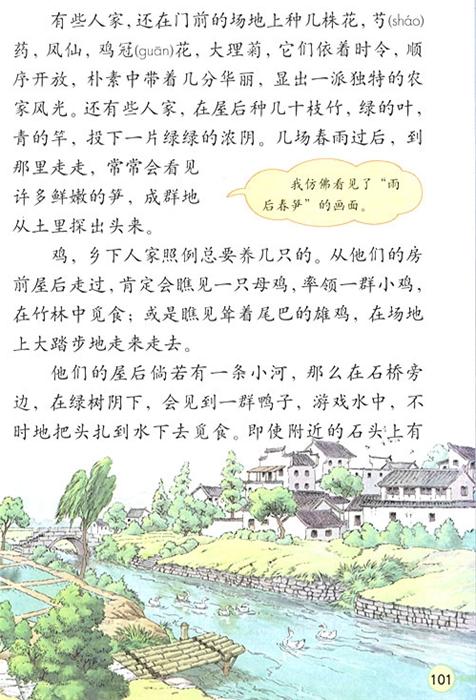 有些人家，还在门前的场地上种几株花，芍(sháo)
药，凤仙，鸡冠(guān)花，大理菊，它们依着时令，顺
序开放，朴素中带着几分华丽，显出一派独特的农
家风光。还有些人家，在屋后种几十枝竹，绿的叶，
青的竿，投下一片绿绿的浓阴。几场春雨过后，到
那里走走，常常会看见
许多鲜嫩的笋，成群地
从土里探出头来。
我仿佛看见了“雨
后春笋”的画面。
鸡，乡下人家照例总要养几只的。从他们的房
前屋后走过，肯定会瞧见一只母鸡，率领一群小鸡，
在竹林中觅食；或是瞧见耸着尾巴的雄鸡，在场地
上大踏步地走来走去。
他们的屋后倘若有一条小河，那么在石桥旁
边，在绿树阴下，会见到一群鸭子，游戏水中，不
时地把头扎到水下去觅食。即使附近的石头上有
101